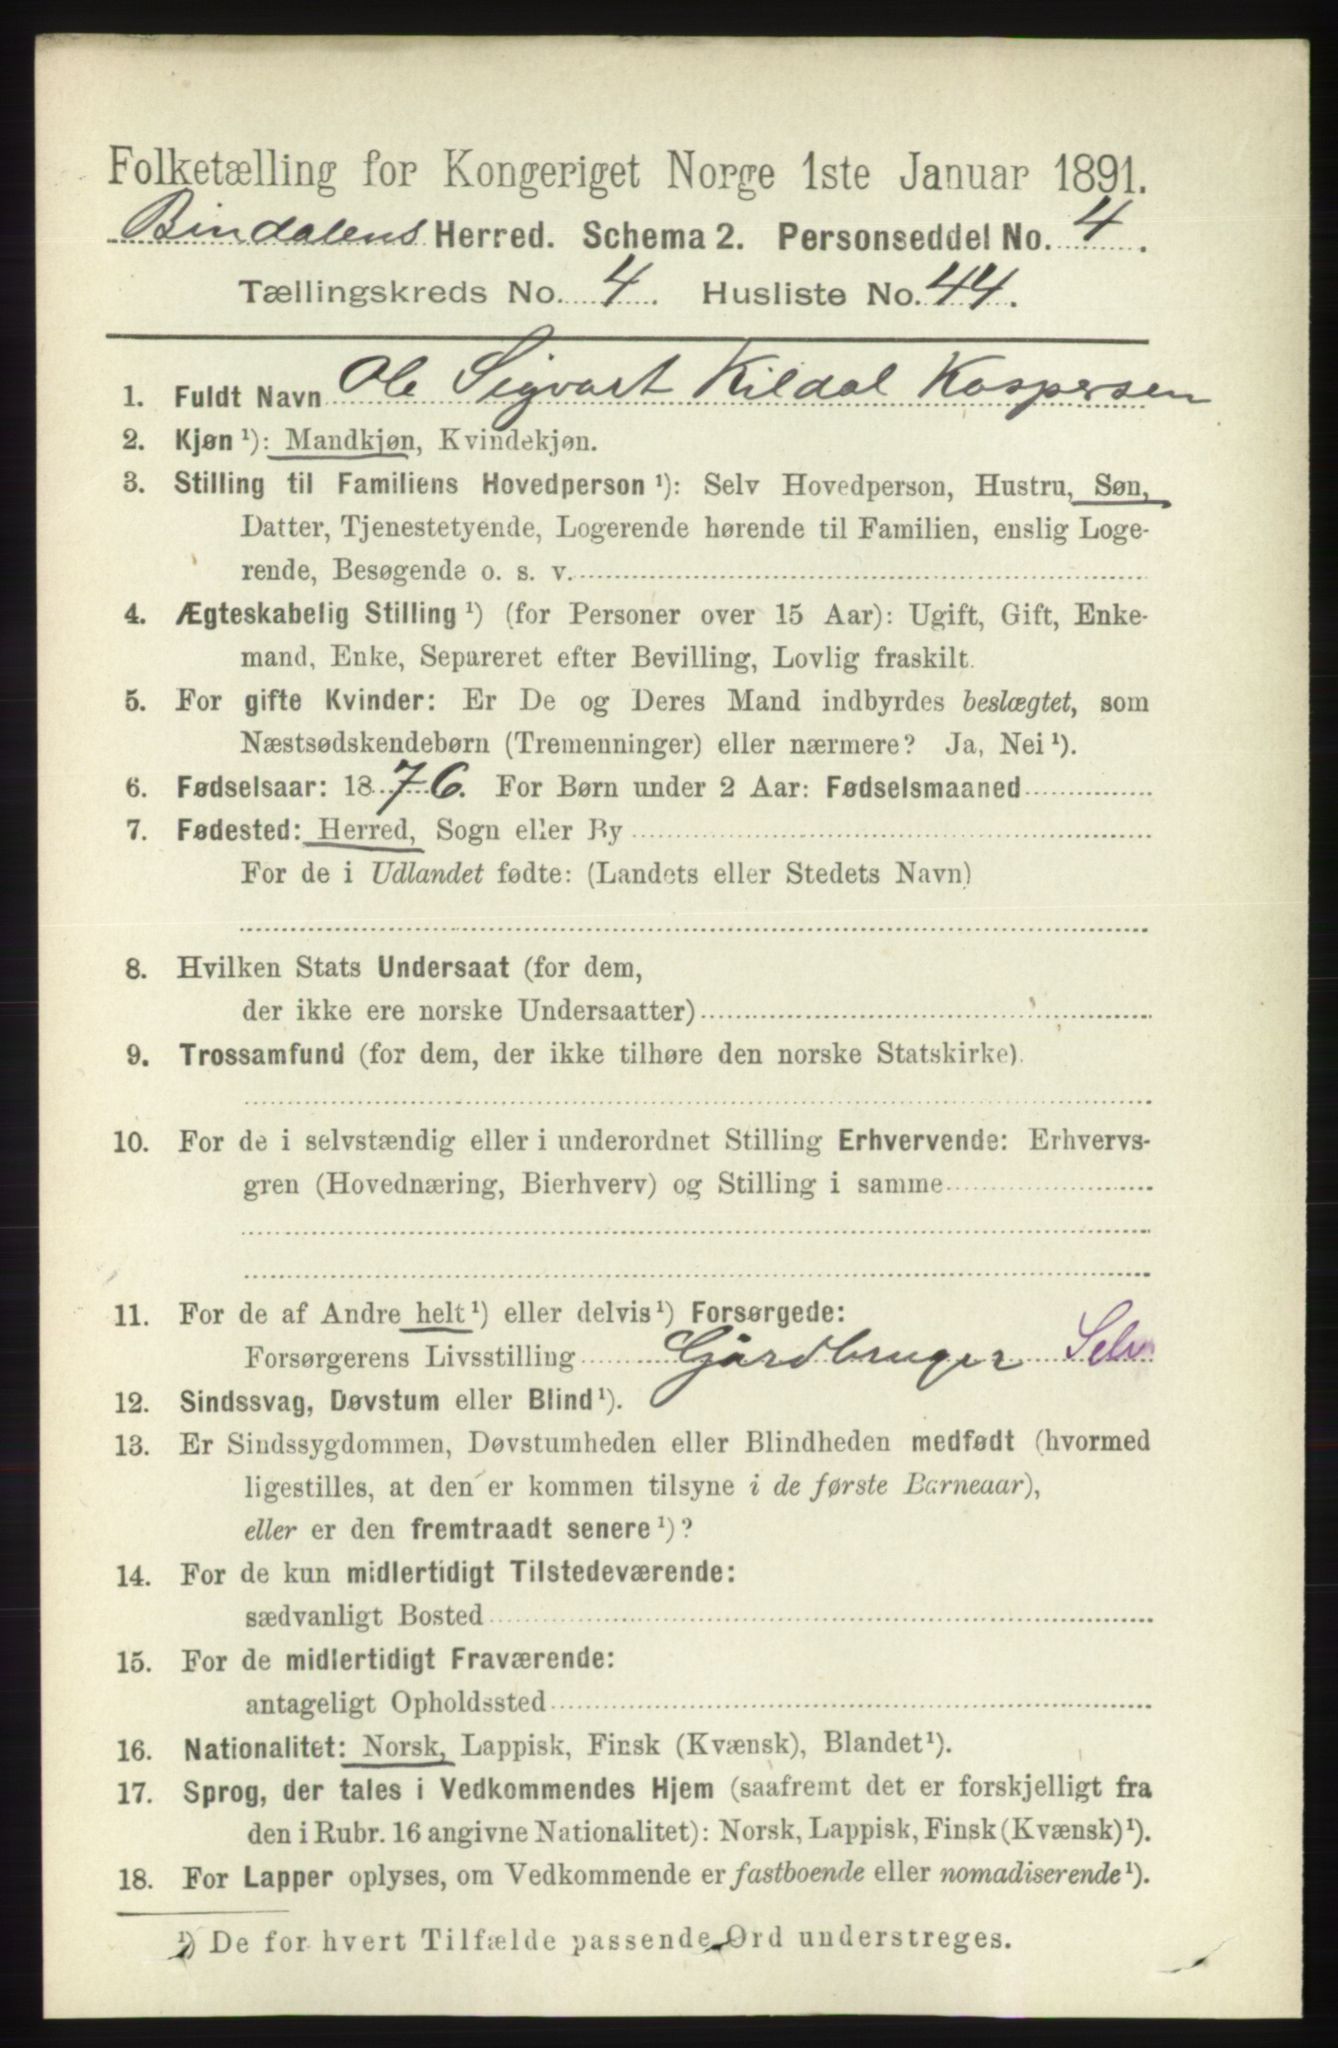 Folketælling for Kongeriget Norge 1ste Januar 1891.
Bindalens Herred. Schema 2. Personseddel No. 4.
Tællingskreds No. 4. Husliste No. 44.
1. Fuldt Navn Ole Sigvart Kildal Kaspersen
2. Kjøn ¹): Mandkjøn, Kvindekjøn.
3. Stilling til Familiens Hovedperson ¹): Selv Hovedperson, Hustru, Søn,
Datter, Tjenestetyende, Logerende hørende til Familien, enslig Loge-
rende, Besøgende o. s. v.
4. Ægteskabelig Stilling ¹) (for Personer over 15 Aar): Ugift, Gift, Enke-
mand, Enke, Separeret efter Bevilling, Lovlig fraskilt.
5. For gifte Kvinder: Er De og Deres Mand indbyrdes beslægtet, som
Næstsødskendebørn (Tremenninger) eller nærmere? Ja, Nei ¹).
6. Fødselsaar: 1876. For Børn under 2 Aar: Fødselsmaaned
7. Fødested: Herred, Sogn eller By
For de i Udlandet fødte: (Landets eller Stedets Navn)
8. Hvilken Stats Undersaat (for dem,
der ikke ere norske Undersaatter)
9. Trossamfund (for dem, der ikke tilhøre den norske Statskirke).
10. For de i selvstændig eller i underordnet Stilling Erhvervende: Erhvervs-
gren (Hovednæring, Bierhverv) og Stilling i samme
11. For de af Andre helt ¹) eller delvis ¹) Forsørgede:
Forsørgerens Livsstilling Gårdbruger Selv
12. Sindssvag, Døvstum eller Blind ¹).
13. Er Sindssygdommen, Døvstumheden eller Blindheden medfødt (hvormed
ligestilles, at den er kommen tilsyne i de første Barneaar),
eller er den fremtraadt senere ¹)?
14. For de kun midlertidigt Tilstedeværende:
sædvanligt Bosted
15. For de midlertidigt Fraværende:
antageligt Opholdssted
16. Nationalitet: Norsk, Lappisk, Finsk (Kvænsk), Blandet ¹).
17. Sprog, der tales i Vedkommendes Hjem (saafremt det er forskjelligt fra
den i Rubr. 16 angivne Nationalitet): Norsk, Lappisk, Finsk (Kvænsk) ¹).
18. For Lapper oplyses, om Vedkommende er fastboende eller nomadiserende ¹).
¹) De for hvert Tilfælde passende Ord understreges.